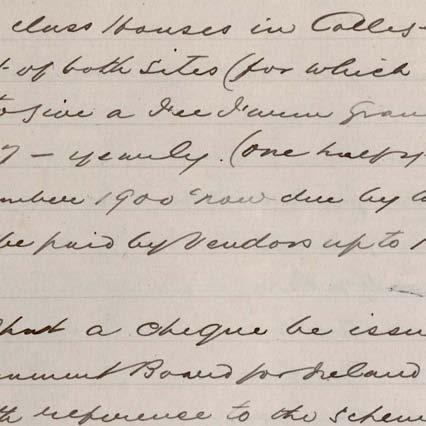 class Houses in Colles-
of both sites (for which
to give a Fee Farm Gran
7 - yearly. (one half y
mber 1900 now due by
be paid by Vendors up to 1
that a cheque be issu
rnment Board for Ireland
th reference to the schem